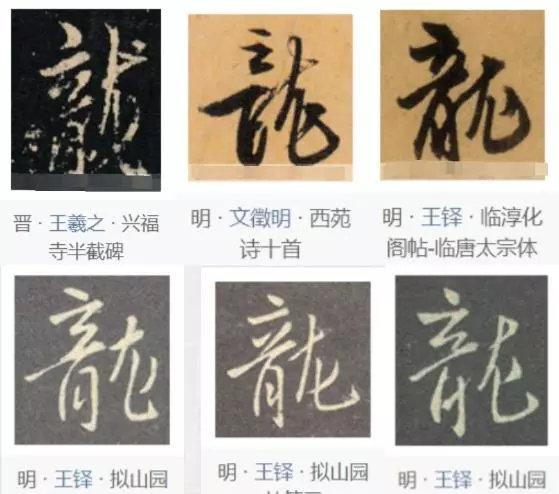 龍
龍
龍
晋·王羲之·兴福
寺半截碑
明·文徵明·西苑
诗十首
明·王铎·临淳化
阁帖-临唐太宗体
龍
龍
龍
明·王铎·拟山园
明·王铎·拟山园
明·王铎·拟山园